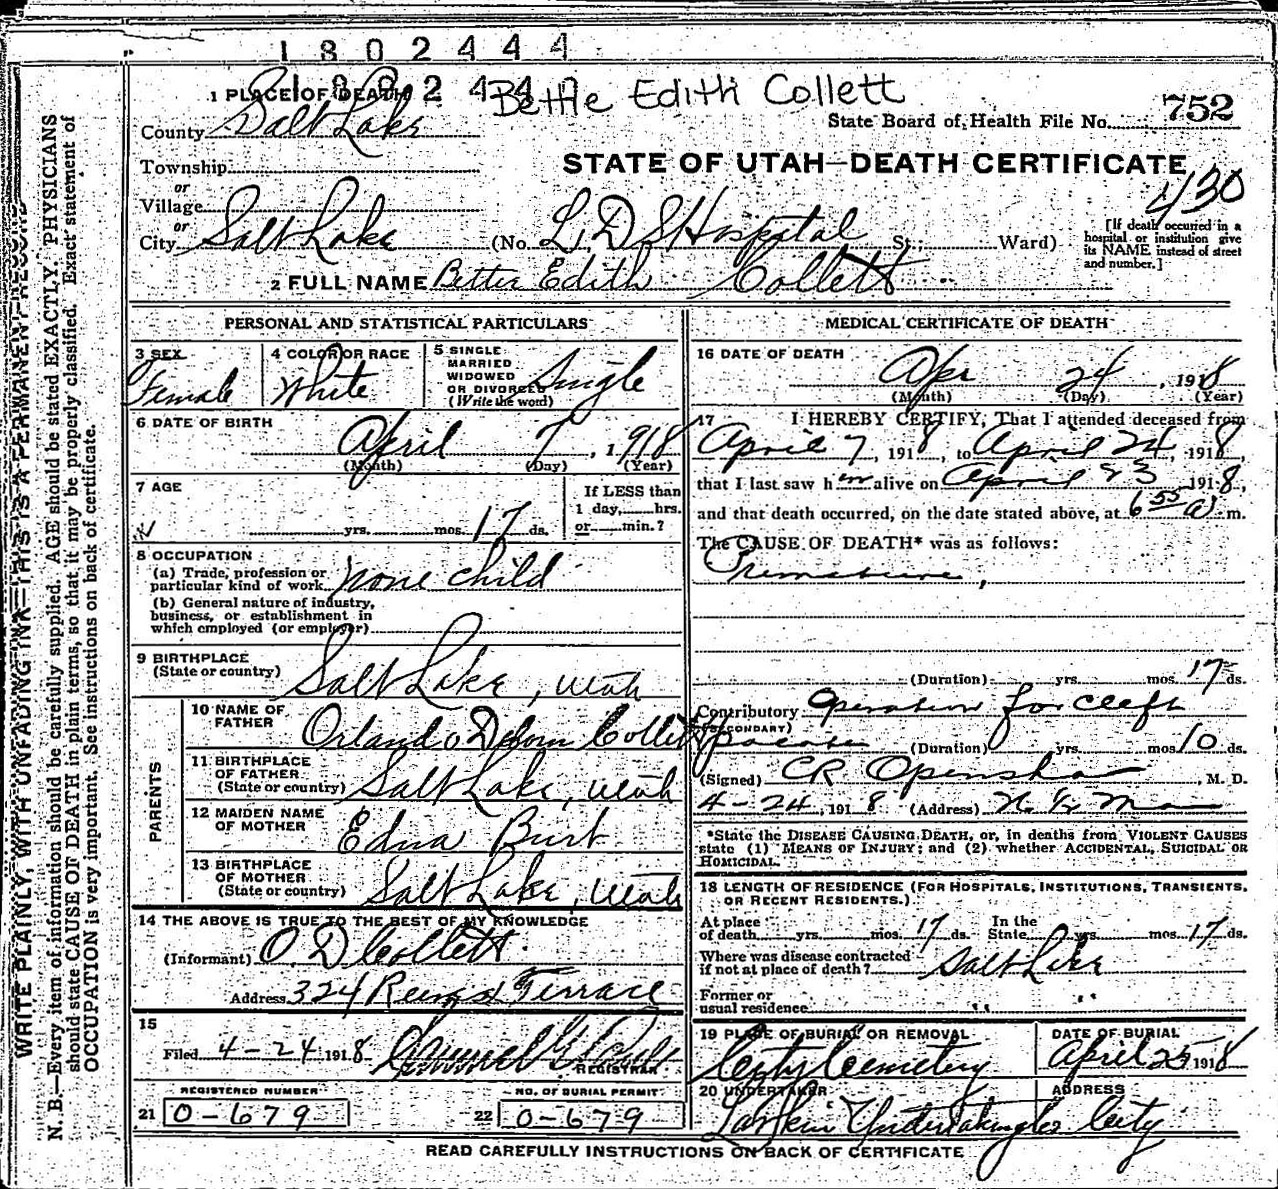 1802444
180244
Bettie Edith Collett
1 PLACE OF DEATH
County Salt Lake
State Board of Health File No. 752
Township
STATE OF UTAH—DEATH CERTIFICATE
or
Village
430
or
City Salt Lake (No. L. D S Hospital St.; Ward)
[If death occurred in a
hospital or institution give
its NAME instead of street
and number.]
2 FULL NAME Bettie Edith Collett
PERSONAL AND STATISTICAL PARTICULARS
3 SEX
Female
4 COLOR OR RACE
White
5 SINGLE
MARRIED
WIDOWED
OR DIVORCED
(Write the word)
Single
6 DATE OF BIRTH
April 7, 1918
(Month) (Day) (Year)
7 AGE
yrs. mos. 17 ds.
If LESS than
1 day, hrs.
or min.?
8 OCCUPATION
(a) Trade, profession or
particular kind of work none child
(b) General nature of industry,
business, or establishment in
which employed (or employer)
9 BIRTHPLACE
(State or country) Salt Lake, Utah
PARENTS
10 NAME OF
FATHER Orlando Collett
11 BIRTHPLACE
OF FATHER
(State or country) Salt Lake, Utah
12 MAIDEN NAME
OF MOTHER Edna Burt
13 BIRTHPLACE
OF MOTHER
(State or country) Salt Lake, Utah
14 THE ABOVE IS TRUE TO THE BEST OF MY KNOWLEDGE
(Informant) O. D Collett
Address 324 Terrace
15
Filed 4-24 1918
REGISTRAR
REGISTERED NUMBER
21 0-679
NO. OF BURIAL PERMIT
22 0-679
MEDICAL CERTIFICATE OF DEATH
16 DATE OF DEATH
Apr 24, 1918
(Month) (Day) (Year)
17 I HEREBY CERTIFY, That I attended deceased from
April 7, 1918, to April 24, 1918,
that I last saw h alive on April 23 1918,
and that death occurred, on the date stated above, at 6 55 a m.
The CAUSE OF DEATH* was as follows:
Premature,
(Duration) yrs. mos. 17 ds.
Contributory Operation for cleft
(SECONDARY)
(Duration) yrs. mos. 10 ds.
(Signed) CR Openshaw, M. D.
4-24, 1918 (Address)
*State the DISEASE CAUSING DEATH, or, in deaths from VIOLENT CAUSES
state (1) MEANS OF INJURY; and (2) whether ACCIDENTAL, SUICIDAL OR
HOMICIDAL.
18 LENGTH OF RESIDENCE (FOR HOSPITALS, INSTITUTIONS, TRANSIENTS,
OR RECENT RESIDENTS.)
At place
of death yrs. mos. 17 ds.
In the
State yrs. mos. 17 ds.
Where was disease contracted
if not at place of death? Salt Lake
Former or
usual residence " "
19 PLACE OF BURIAL OR REMOVAL
City Cemetery
DATE OF BURIAL
April 25 1918
20 UNDERTAKER
Larkin Undertaking Co
ADDRESS
City
READ CAREFULLY INSTRUCTIONS ON BACK OF CERTIFICATE
WRITE PLAINLY, WITH UNFADING INK—THIS IS A PERMANENT RECORD
N. B.—Every item of information should be carefully supplied. AGE should be stated EXACTLY. PHYSICIANS
should state CAUSE OF DEATH in plain terms, so that it may be properly classified. Exact statement of
OCCUPATION is very important. See instructions on back of certificate.